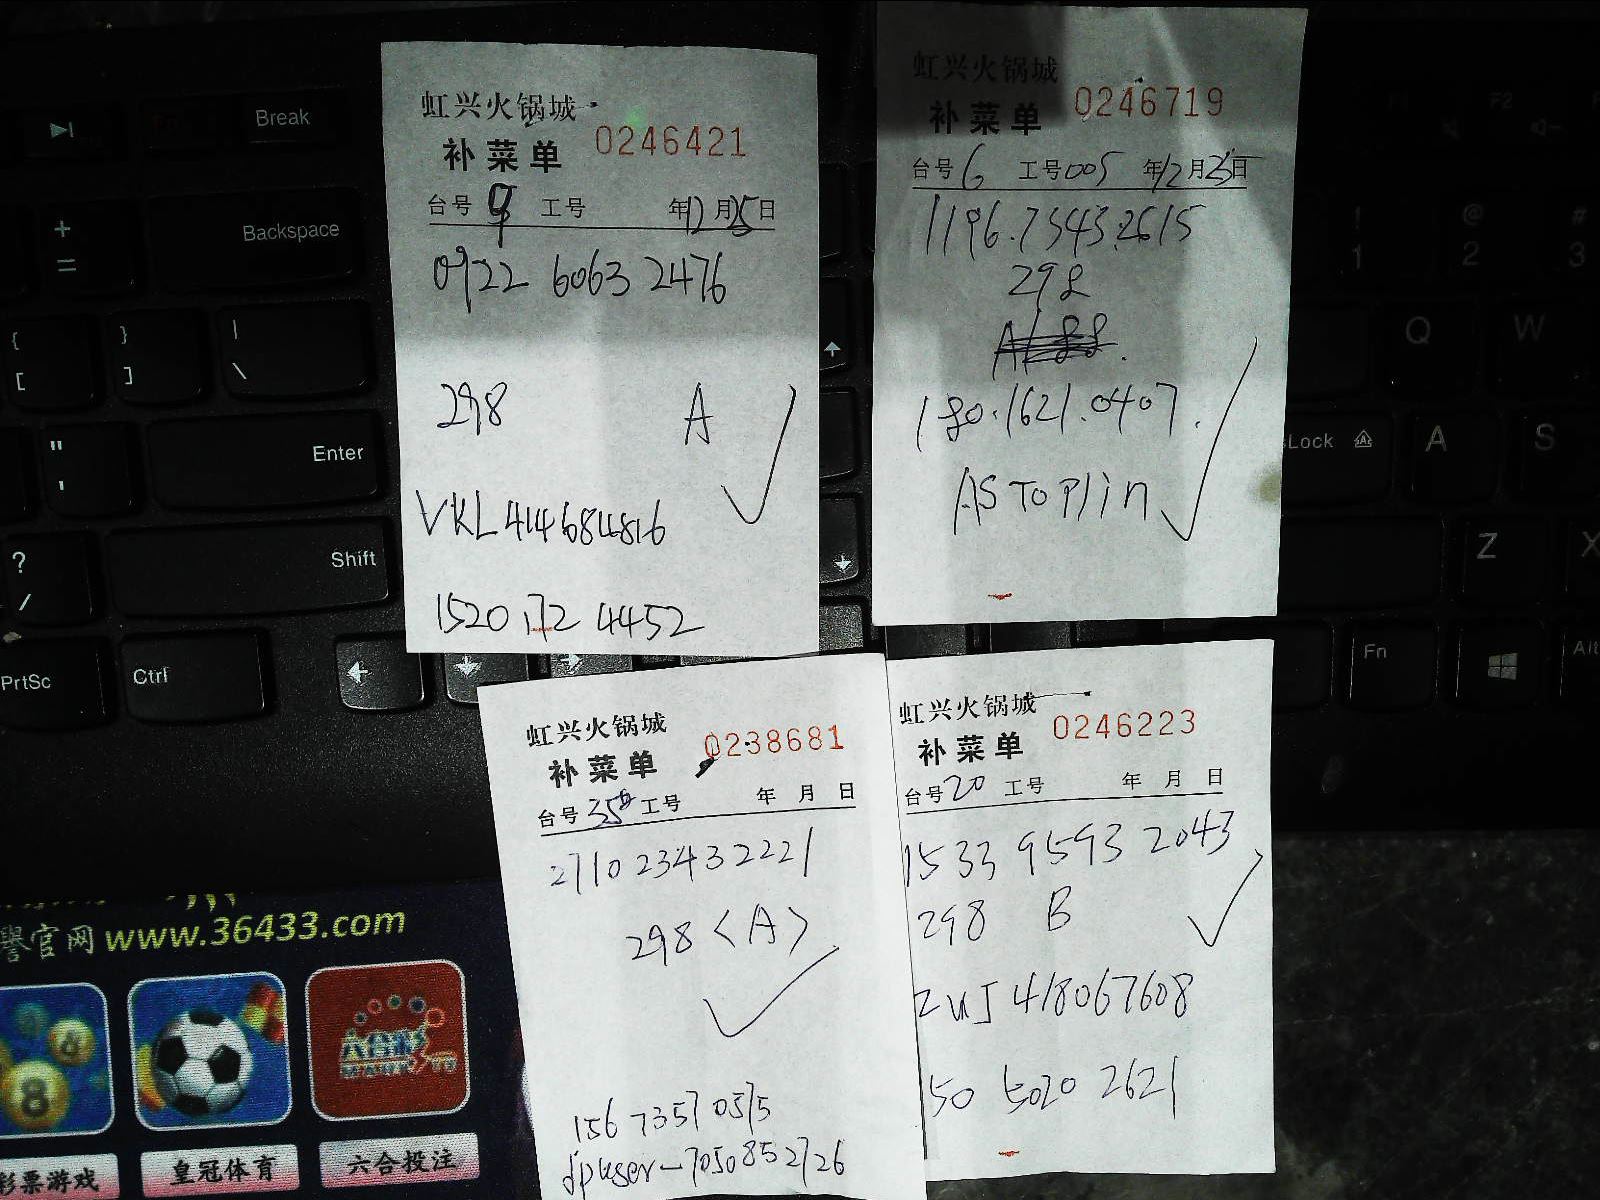 虹兴火锅城
补菜单 0246421
台号 9 工号 年12月25日
0922 6063 2476
298 A
VKL414684816
1520 172 4452
虹兴火锅城
补菜单 0246719
台号 6 工号 005 年12月25日
1196.7343.2615
298
180.1621.0407.
AS Toplin
虹兴火锅城
补菜单 0238681
台号 35 工号 年 月 日
2710 2343 2221
298 <A>
156 7357 0575
dpuser-7050852726
虹兴火锅城
补菜单 0246223
台号 20 工号 年 月 日
1533 9593 2043
298 B
ZUJ 418067608
150 5020 2621
Break
+
=
Backspace
{
[
}
]
|
\
"
'
Enter
?
/
Shift
PrtSc
Ctrl
F2
!
1
@
2
#
3
Q
W
Lock
A
S
Z
X
Fn
Alt
誉官网 www.36433.com
4
8
彩票游戏
皇冠体育
六合投注